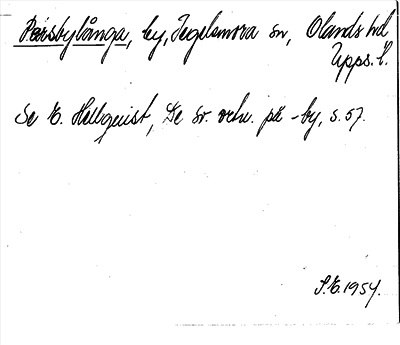 Persbylånga, by, Tegelsmora sn, Olands hd
Upps. l.
Se E. Hellquist, De sv. ortn. på -by, s. 57.
S.E. 1954.